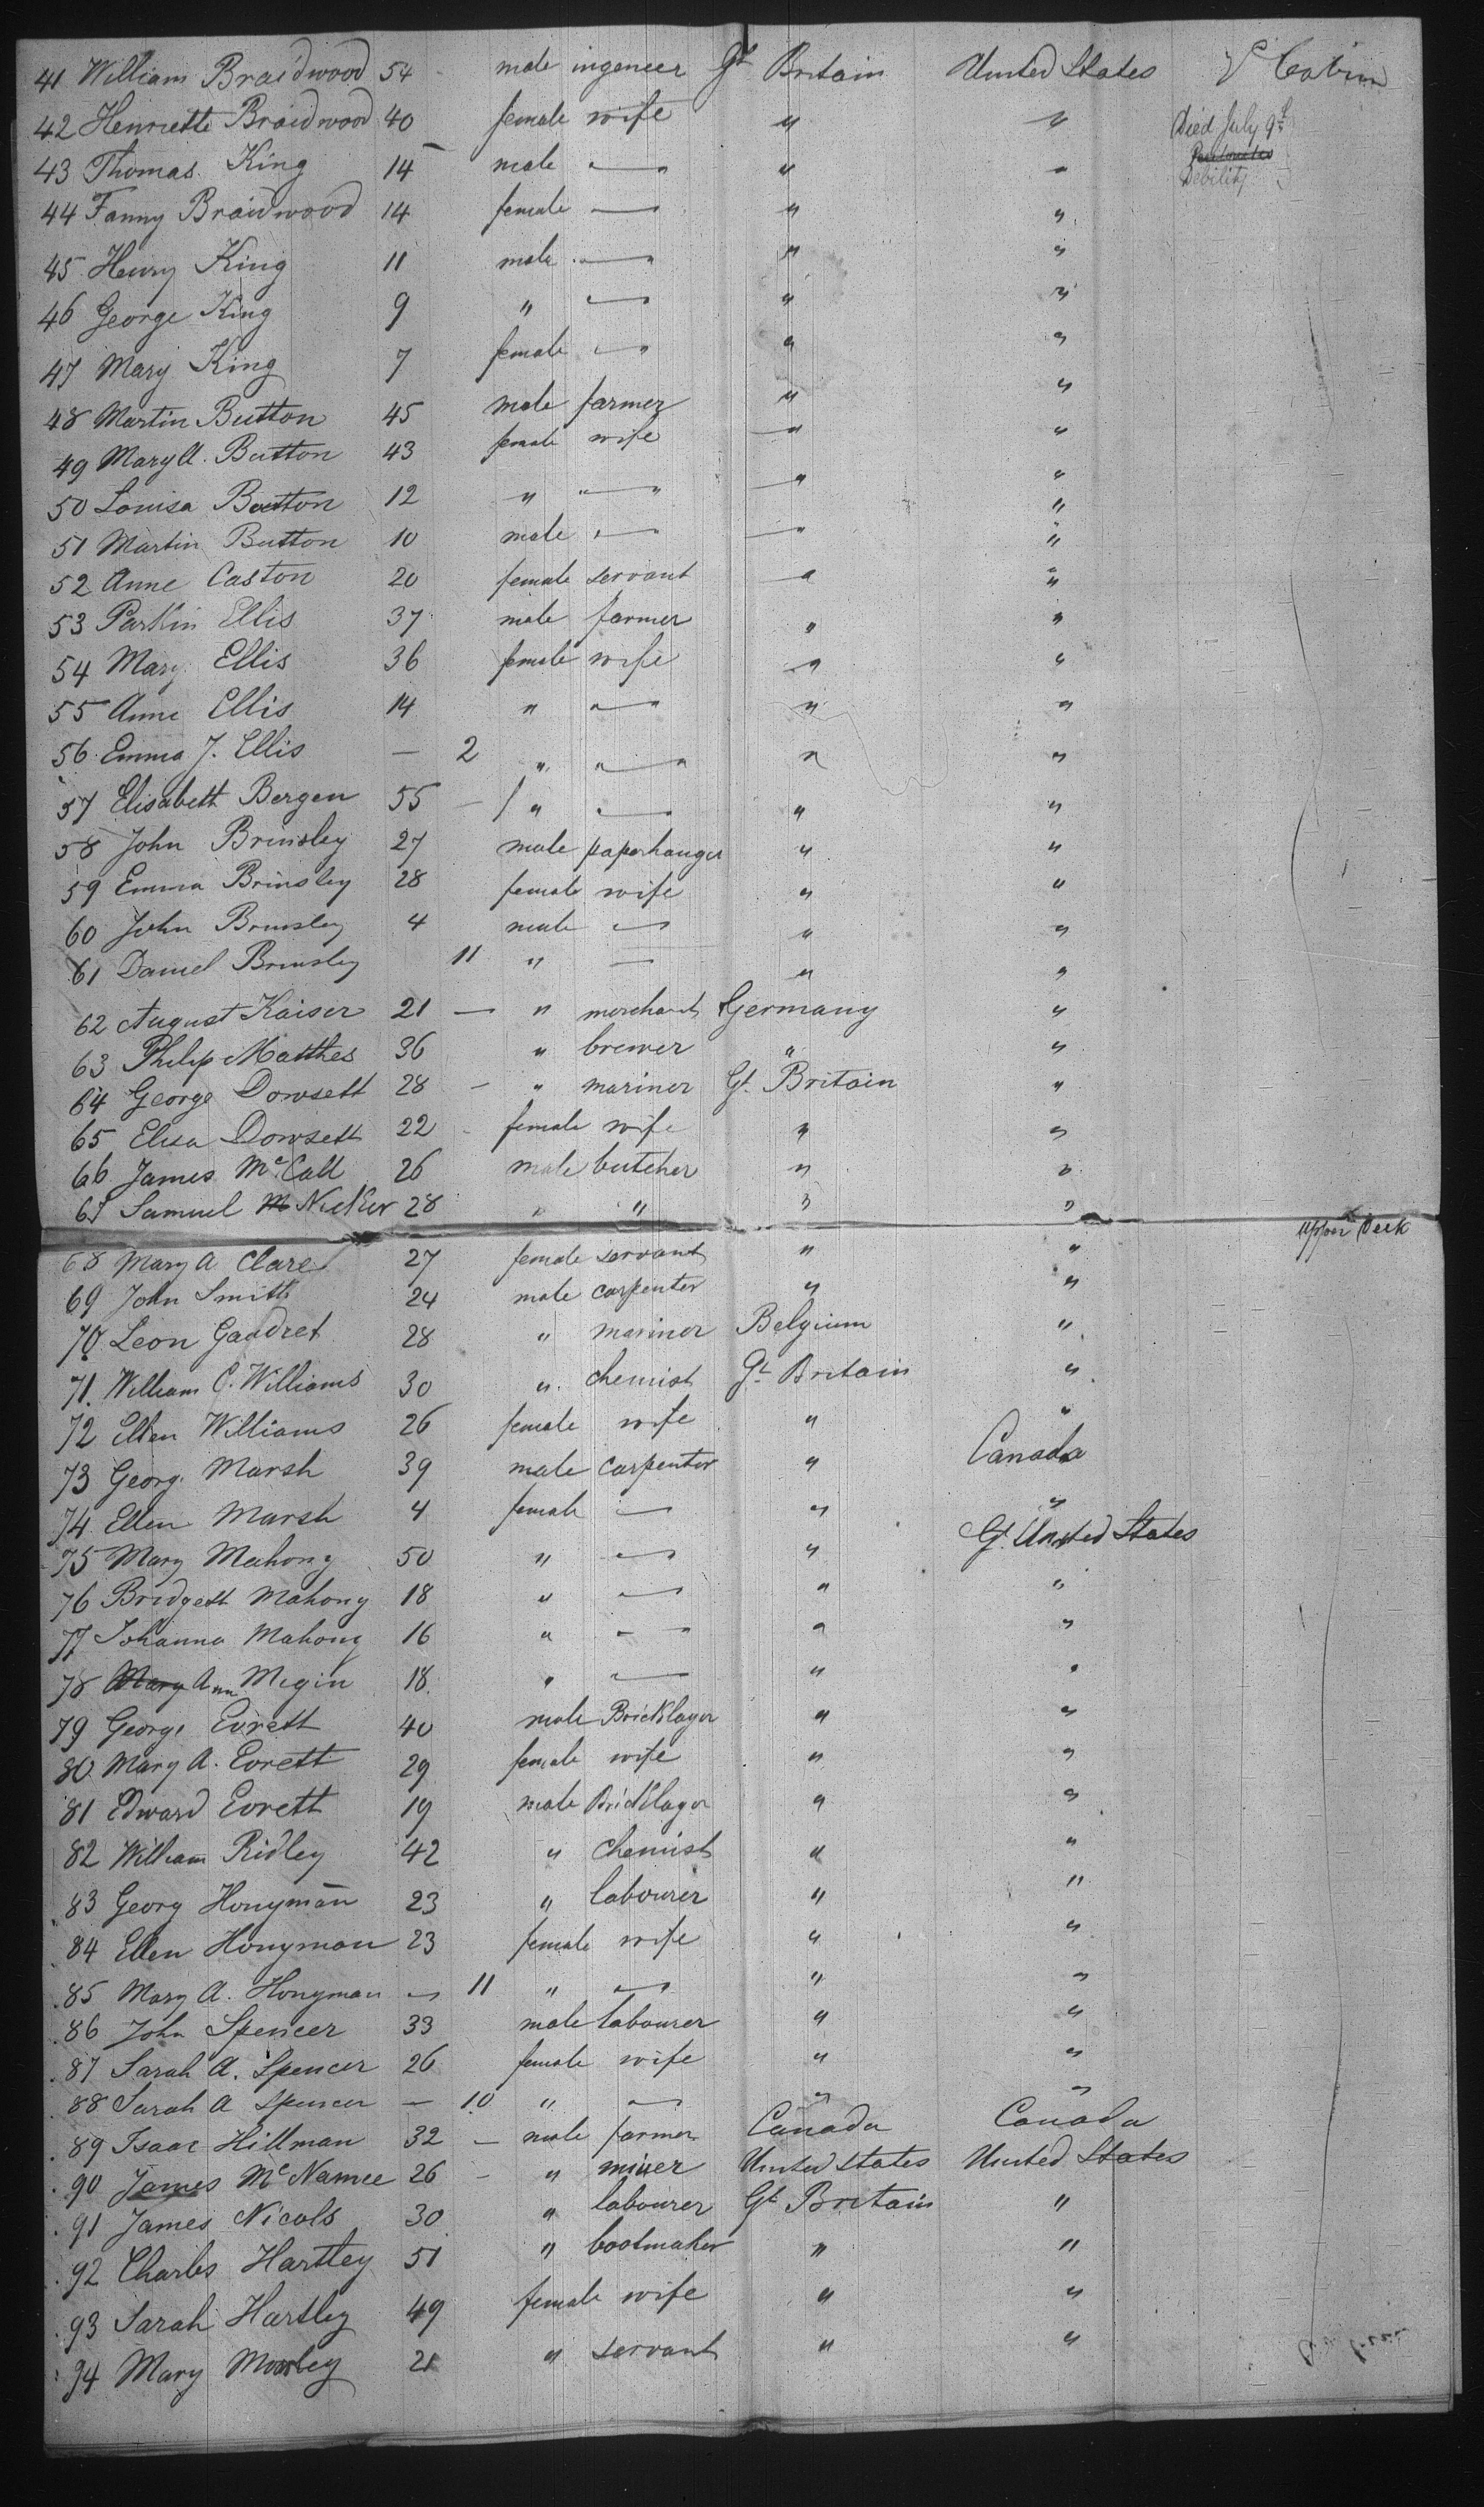 41 William Braidwood 54 male ingeneer Gt Britain United States Cabin
42 Henriette Braidwood 40 female wife " " Died July 9th
Debility
43 Thomas King 14 male — " "
44 Fanny Braidwood 14 female — " "
45 Henry King 11 male — " "
46 George King 9 " — " "
47 Mary King 7 female — " "
48 Martin Button 45 male farmer " "
49 Mary A. Button 43 female wife " "
50 Louisa Button 12 " — " "
51 Martin Button 10 male — " "
52 Anne Caston 20 female servant " "
53 Parkin Ellis 37 male farmer " "
54 Mary Ellis 36 female wife " "
55 Anne Ellis 14 " — " "
56 Emma J. Ellis — 2 " — " "
57 Elisabett Bergen 55 — " — " "
58 John Brinsley 27 male paperhanger " "
59 Emma Brinsley 28 female wife " "
60 John Brinsley 4 male — " "
61 Daniel Brinsley 11 " — " "
62 August Kaiser 21 — " merchant Germany "
63 Philip Matthes 36 " brewer " "
64 George Dowsett 28 — " mariner Gt. Britain "
65 Elisa Dowsett 22 female wife " "
66 James McCall 26 male butcher " "
67 Samuel McNicker 28 " " " "
Upper Deck
68 Mary A Clare 27 female servant " "
69 John Smith 24 male carpenter " "
70 Leon Gaudret 28 " mariner Belgium "
71. William C. Williams 30 " chemist Gt Britain "
72 Ellen Williams 26 female wife " "
73 Georg. Marsh 39 male carpenter " Canada
74 Ellen Marsh 4 female — " "
75 Mary Mahony 50 " — " Gt. United States
76 Bridgett Mahony 18 " — " "
77 Johanna Mahony 16 " — " "
78 Mary Ann Megin 18 " — " "
79 George Evrett 40 male Bricklayer " "
80. Mary A. Evrett 29 female wife " "
81 Edward Evrett 19 male Bricklayer " "
82 William Ridley 42 " chemist " "
83 Georg Honyman 23 " labourer " "
84 Ellen Honyman 23 female wife " "
85 Mary A. Honyman — 11 " — " "
86 John Spencer 33 male labourer " "
87 Sarah A. Spencer 26 female wife " "
88 Sarah A Spencer — 10 " — " "
89 Isaac Hillman 32 — male farmer Canada Canada
90 James McNamee 26 — " miner United States United States
91 James Nicols 30 " labourer Gt Britain "
92 Charles Hartley 51 " bootmaker " "
93 Sarah Hartley 49 female wife " "
94 Mary Morley 21 " servant " "